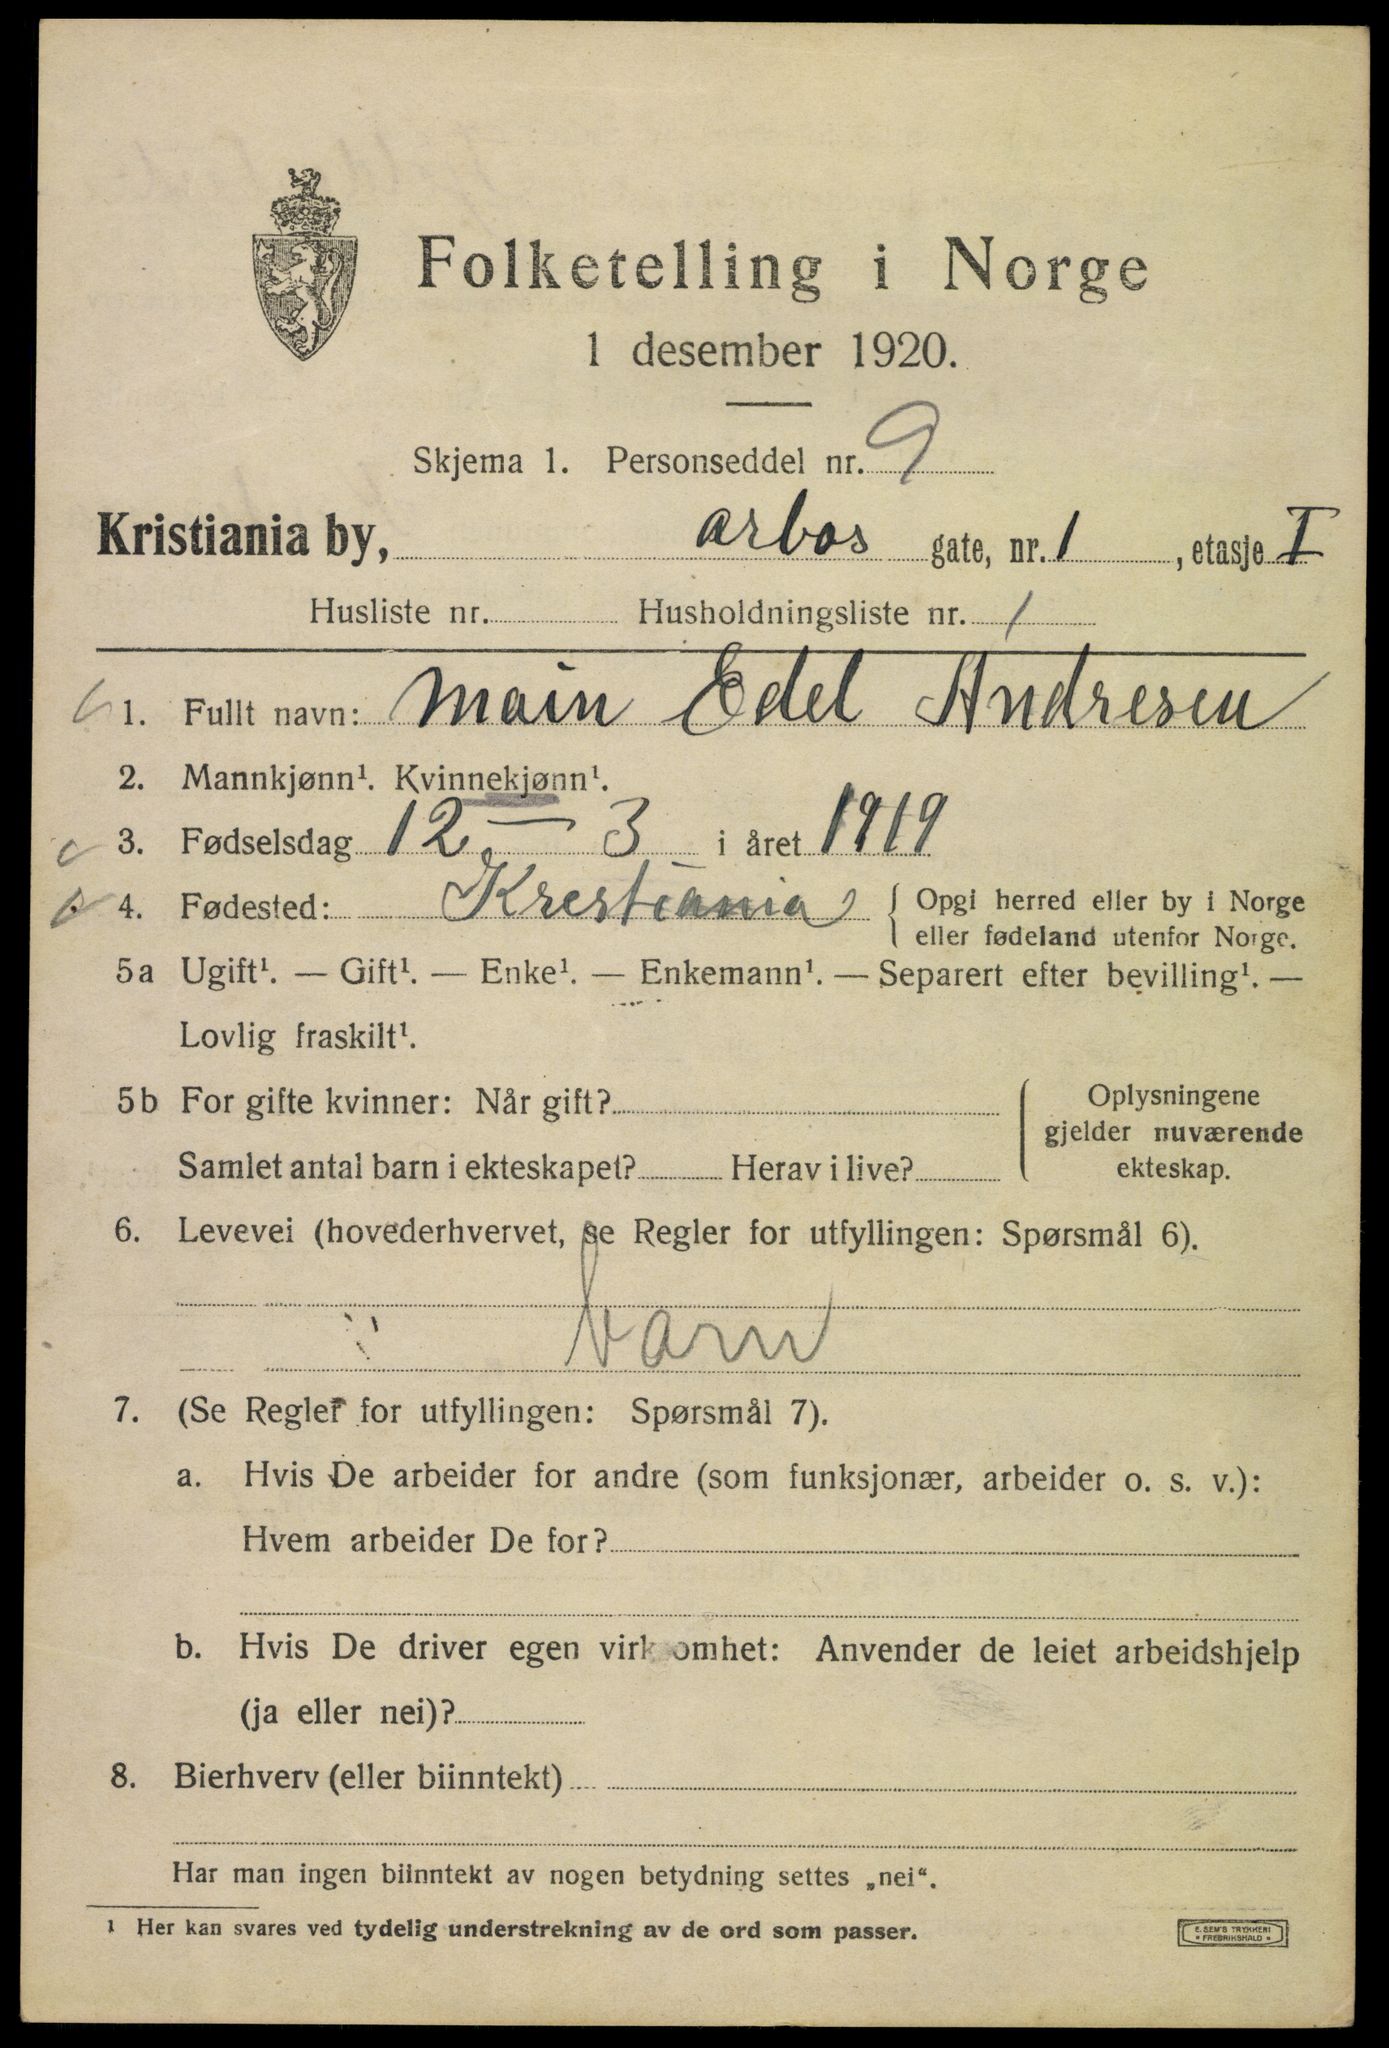 Folketelling i Norge
1 desember 1920.
Skjema 1. Personseddel nr. 9
Kristiania by, arbos gate, nr. 1, etasje I
Husliste nr. Husholdningsliste nr. 1
1. Fullt navn: Main Edel Andresen
2. Mannkjønn¹. Kvinnekjønn¹.
3. Fødselsdag 12 — 3 i året 1919
4. Fødested: Krestiania { Opgi herred eller by i Norge
eller fødeland utenfor Norge.
5a Ugift¹. — Gift¹. — Enke¹. — Enkemann¹. — Separert efter bevilling¹. —
Lovlig fraskilt¹.
5b For gifte kvinner: Når gift?
Samlet antal barn i ekteskapet? Herav i live?
Oplysningene
gjelder nuværende
ekteskap.
6. Levevei (hovederhvervet, se Regler for utfyllingen: Spørsmål 6).
barn
7. (Se Regler for utfyllingen: Spørsmål 7).
a. Hvis De arbeider for andre (som funksjonær, arbeider o. s. v.):
Hvem arbeider De for?
b. Hvis De driver egen virksomhet: Anvender de leiet arbeidshjelp
(ja eller nei)?
8. Bierhverv (eller biinntekt)
Har man ingen biinntekt av nogen betydning settes „nei“.
1 Her kan svares ved tydelig understrekning av de ord som passer.
E. SEM'S TRYKKERI
* FREDRIKSHALD *